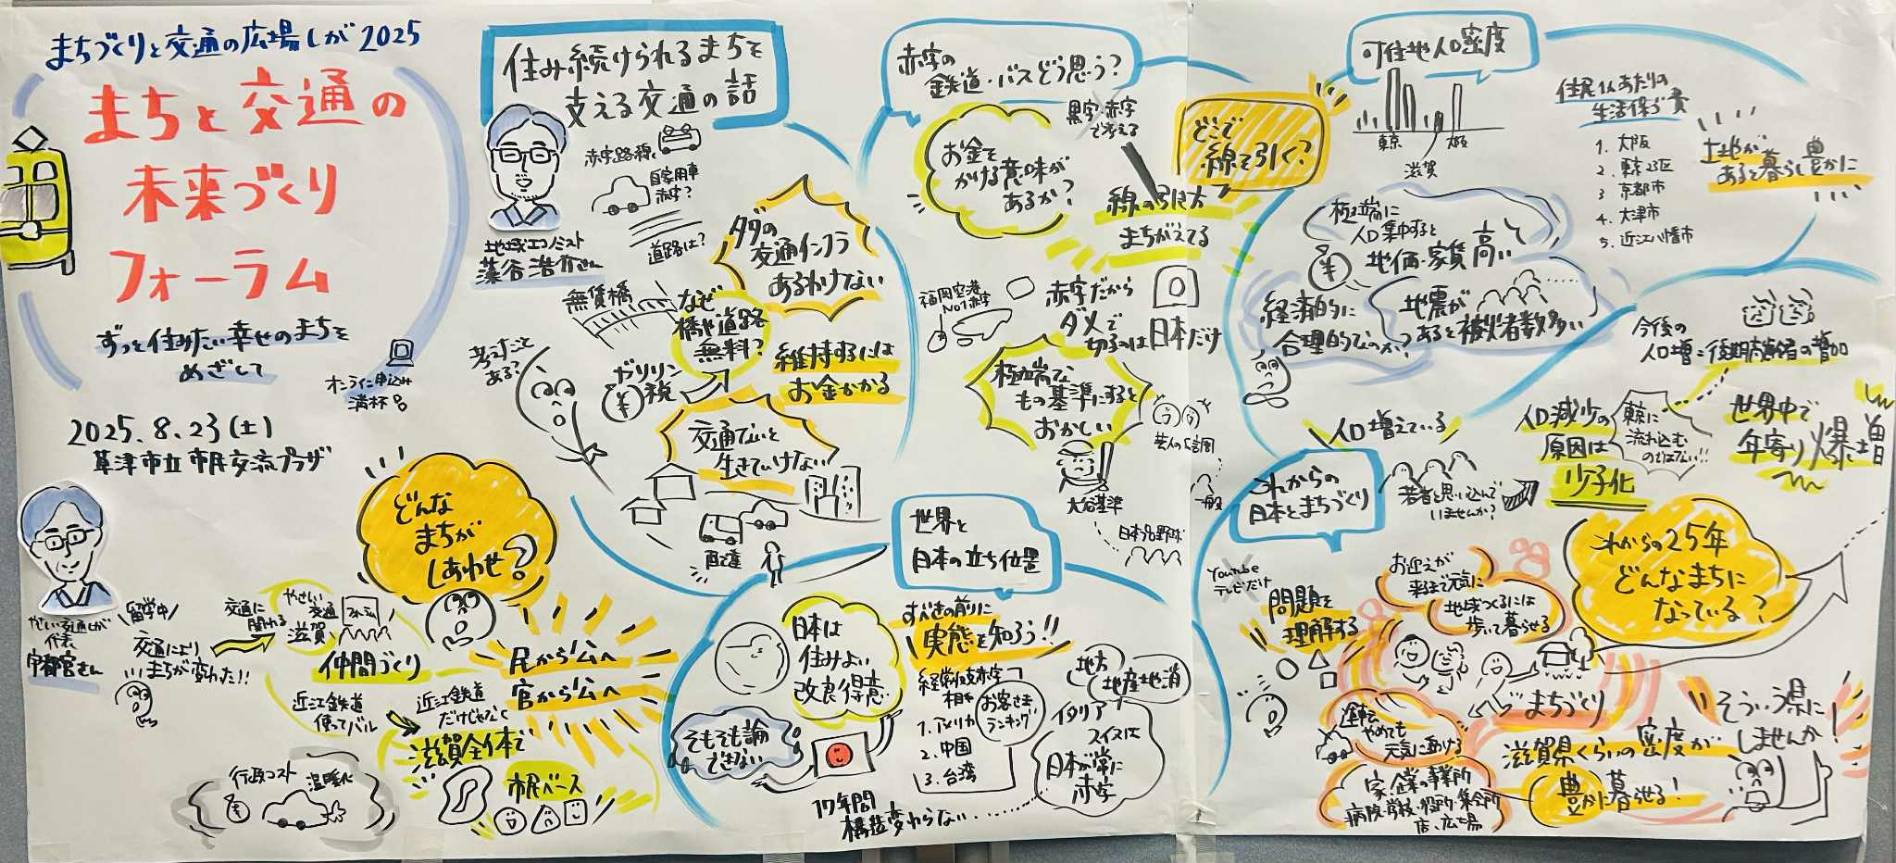 まちづくりと交通の広場しが2025
まちと交通の
未来づくり
フォーラム
ずっと住みたい幸せのまちを
めざして
オンライン申込み
満杯
2025.8.23(土)
草津市立市民交流プラザ
代表
宇都宮さん
留学中
交通により
まちが変わった!!
交通に
関わる
やさしい
交通
滋賀
フォーラム
仲間づくり
近江鉄道
使ってバル
近江鉄道
だけじゃなく
滋賀全体で
市民ベース
行政コスト
温暖化
どんな
まちが
しあわせ?
民から公へ
官から公へ
住み続けられるまちを
支える交通の話
地域エコノミスト
藻谷浩介さん
赤字路線
自家用車
赤字?
道路は?
無賃橋
なぜ
橋や道路
無料?
ガソリン
税
考えたこと
ある?
タダの
交通インフラ
あるわけない
維持するには
お金かかる
交通ないと
生きていけない
配達
赤字の
鉄道・バスどう思う?
黒字・赤字
で考える
お金を
かける意味が
あるか?
線の引き方
まちがえてる
どこで
線を引く?
福岡空港
No1赤字
赤字だから
ダメで
切るのは日本だけ
極端な
もの基準にすると
おかしい
大谷基準
日本プロ野球
芸人
一般
世界と
日本の立ち位置
日本は
住みよい
改良得意
そもそも論
できない
すべきの前に
実態を知ろう!!
経常収支赤字
相手
1.アメリカ
2.中国
3.台湾
お客さま
ランキング
地方
地産地消
イタリア
スイスは
日本が常に
赤字
17年間
構造変わらない
可住地人口密度
東京
滋賀
大阪
住民1人あたりの
生活保護費
1.大阪
2.東京23区
3 京都市
4.大津市
5.近江八幡市
土地が
あると暮らし豊かに
極端に
人口集中すると
地価・家賃高い
経済的に
合理的なのか?
地震が
あると被災者数多い
今後の
人口増=後期高齢者の増加
世界中で
年寄り爆増
人口減少の
原因は
少子化
東京に
流れ込む
のではない!!
人口増えている
若者と思い込んで
いませんか?
これからの
日本とまちづくり
Youtube
テレビだけ
問題を
理解する
お迎えが
来るまで元気に
地域つくるには
歩いて暮らせる
これからの25年
どんなまちに
なっている?
まちづくり
運転
やめても
元気に動ける
家・企業の事業所
病院・学校・役所・集会所
店、広場
滋賀県くらいの密度が
豊かに暮らせる!
そういう県に
しませんか!